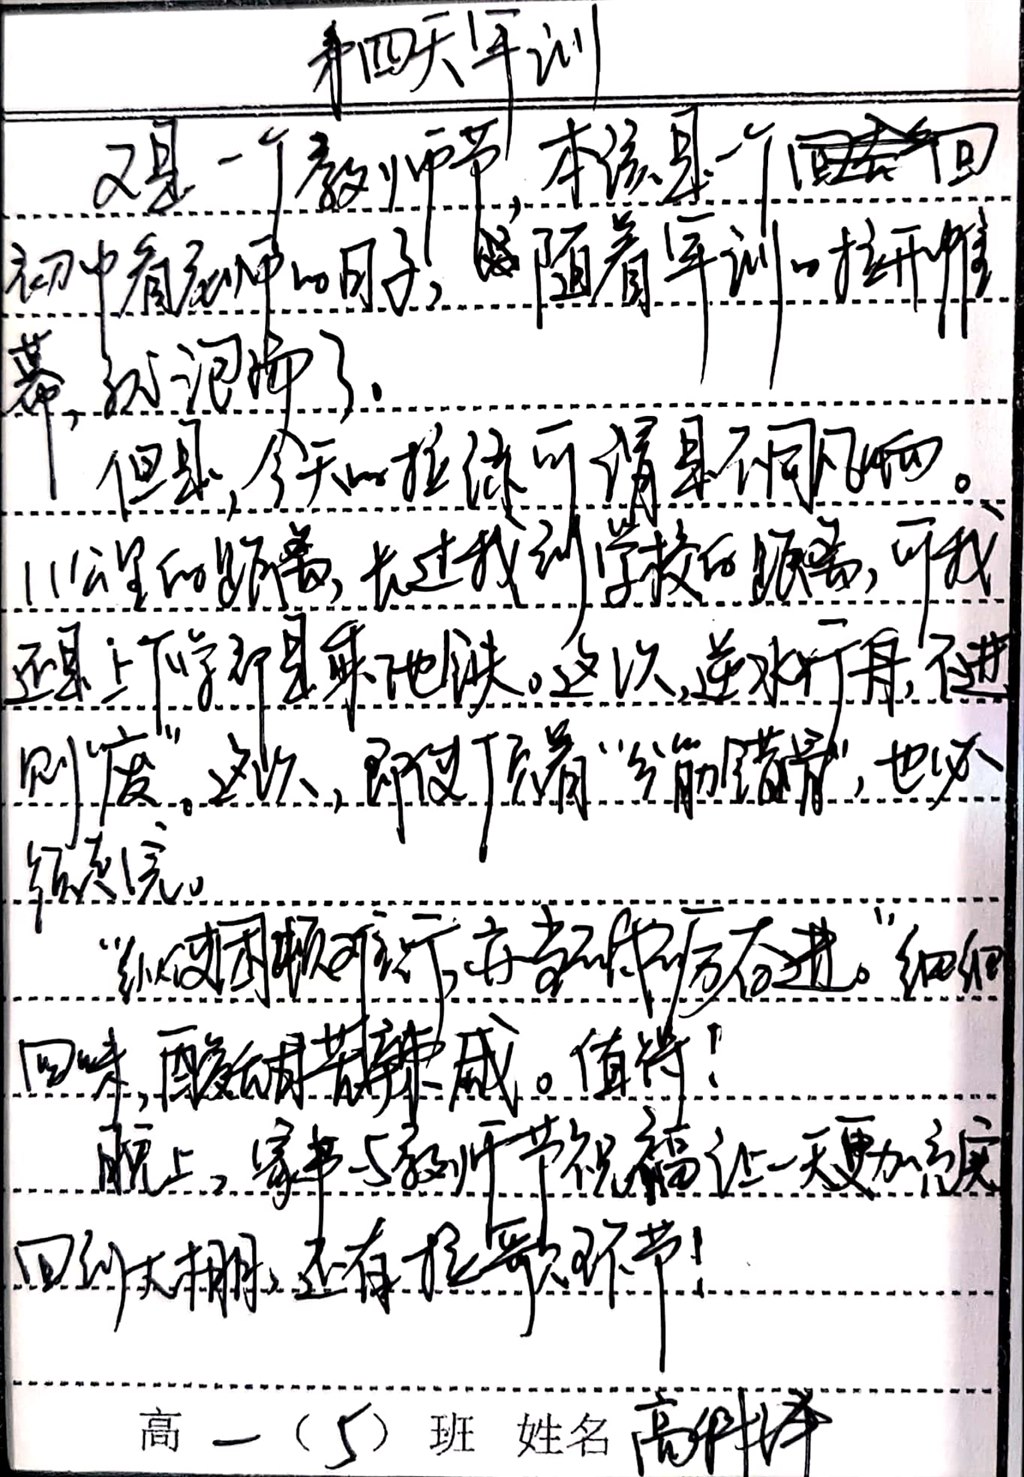 第四天军训
又是一个教师节，本该是一个回
初中看老师的日子，随着军训的拉开帷
幕，就泡汤了.
但是，今天的拉练可谓是不同凡响。
11公里的距离，长过我到学校的距离，可我
还是上下学都是乘地铁。这次，逆水行舟，不进
则"度"。这次，即使顶着"分筋错骨"，也必
须走完。
"纵使困顿难行，亦当砥砺奋进。"细细
回味，酸甜苦辣咸。值得！
晚上，家书与教师节祝福让一天更加充实
回到大棚，还有拉歌环节！
高一（5）班 姓名 高